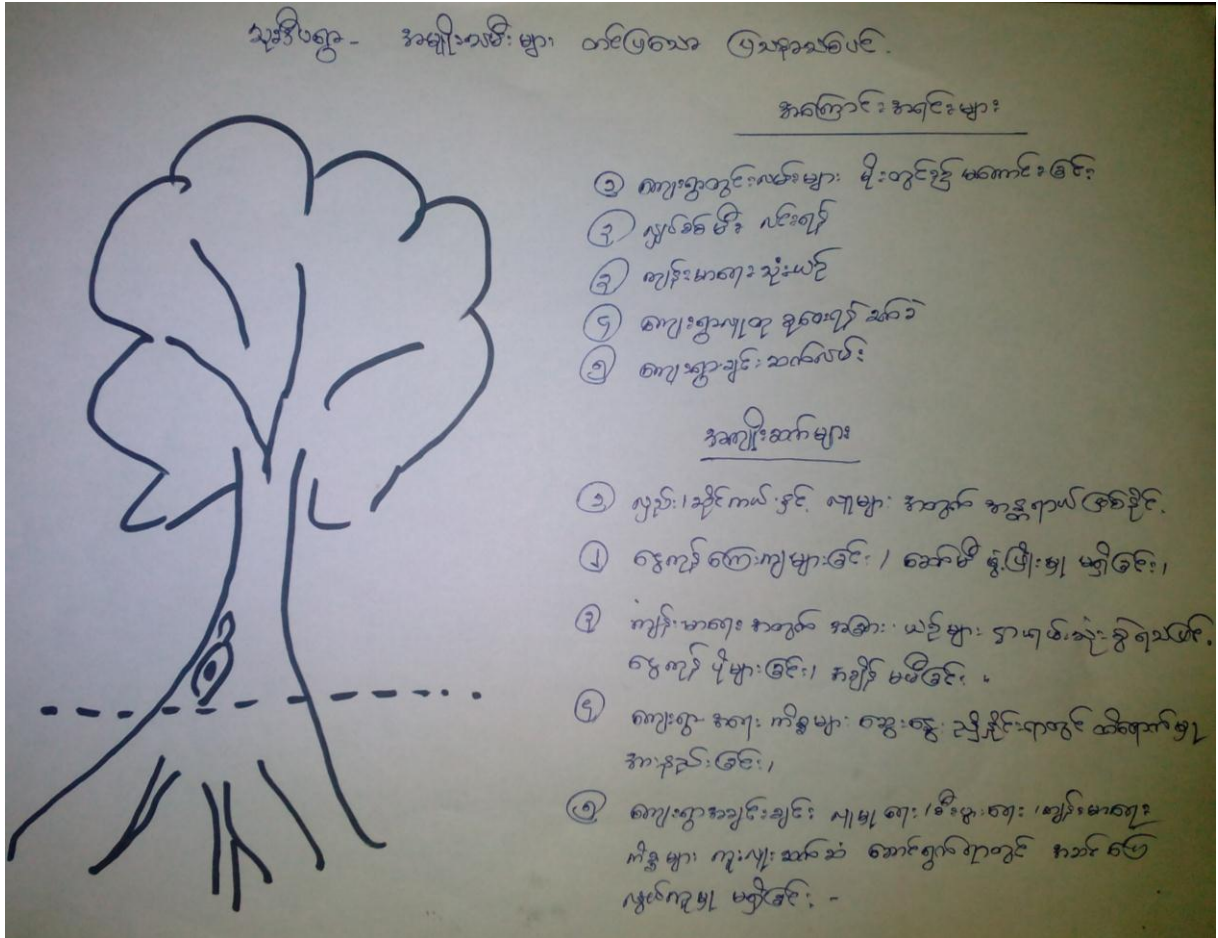 သုဒိပရွာ - အမျိုးသမီးများ တင်ပြသော ပြဿနာသစ်ပင်.
အကြောင်းအရင်းများ
၁ ကျေးရွာတွင်းလမ်းများ မိုးတွင်း၌ မကောင်းခြင်း
၂ လျှပ်စစ်မီး လင်းရန်
၃ ကျန်းမာရေး သုံးယာဉ်
၄ ကျေးရွာလူထု စုဝေးရန် ခက်ခဲ
၅ ကျေးရွာချင်း ဆက်လမ်း
အကျိုးဆက်များ
၁ လှည်း၊ ဆိုင်ကယ် နှင့် လူများ အတွက် အန္တရာယ်ဖြစ်နိုင်.
၂ ငွေကုန်ကြေးကျများခြင်း၊ ခေတ်မီ ဖွံ့ဖြိုးမှု မရှိခြင်း၊
၃ ကျန်းမာရေး အတွက် အခြား ယာဉ်များ ငှားရမ်းသုံးစွဲရသဖြင့်.
ငွေကုန် ပိုများခြင်း၊ အချိန် မမီခြင်း.
၄ ကျေးရွာ အရေး ကိစ္စများ ဆွေးနွေး ညှိနှိုင်းရာတွင် ထိရောက်မှု
အားနည်းခြင်း၊
၅ ကျေးရွာအချင်းချင်း လူမှုရေး၊ စီးပွားရေး၊ ကျန်းမာရေး
ကိစ္စများ ကူးလူးဆက်ဆံ ဆောင်ရွက်ရာတွင် အဆင်ပြေ
လွယ်ကူမှု မရှိခြင်း. -